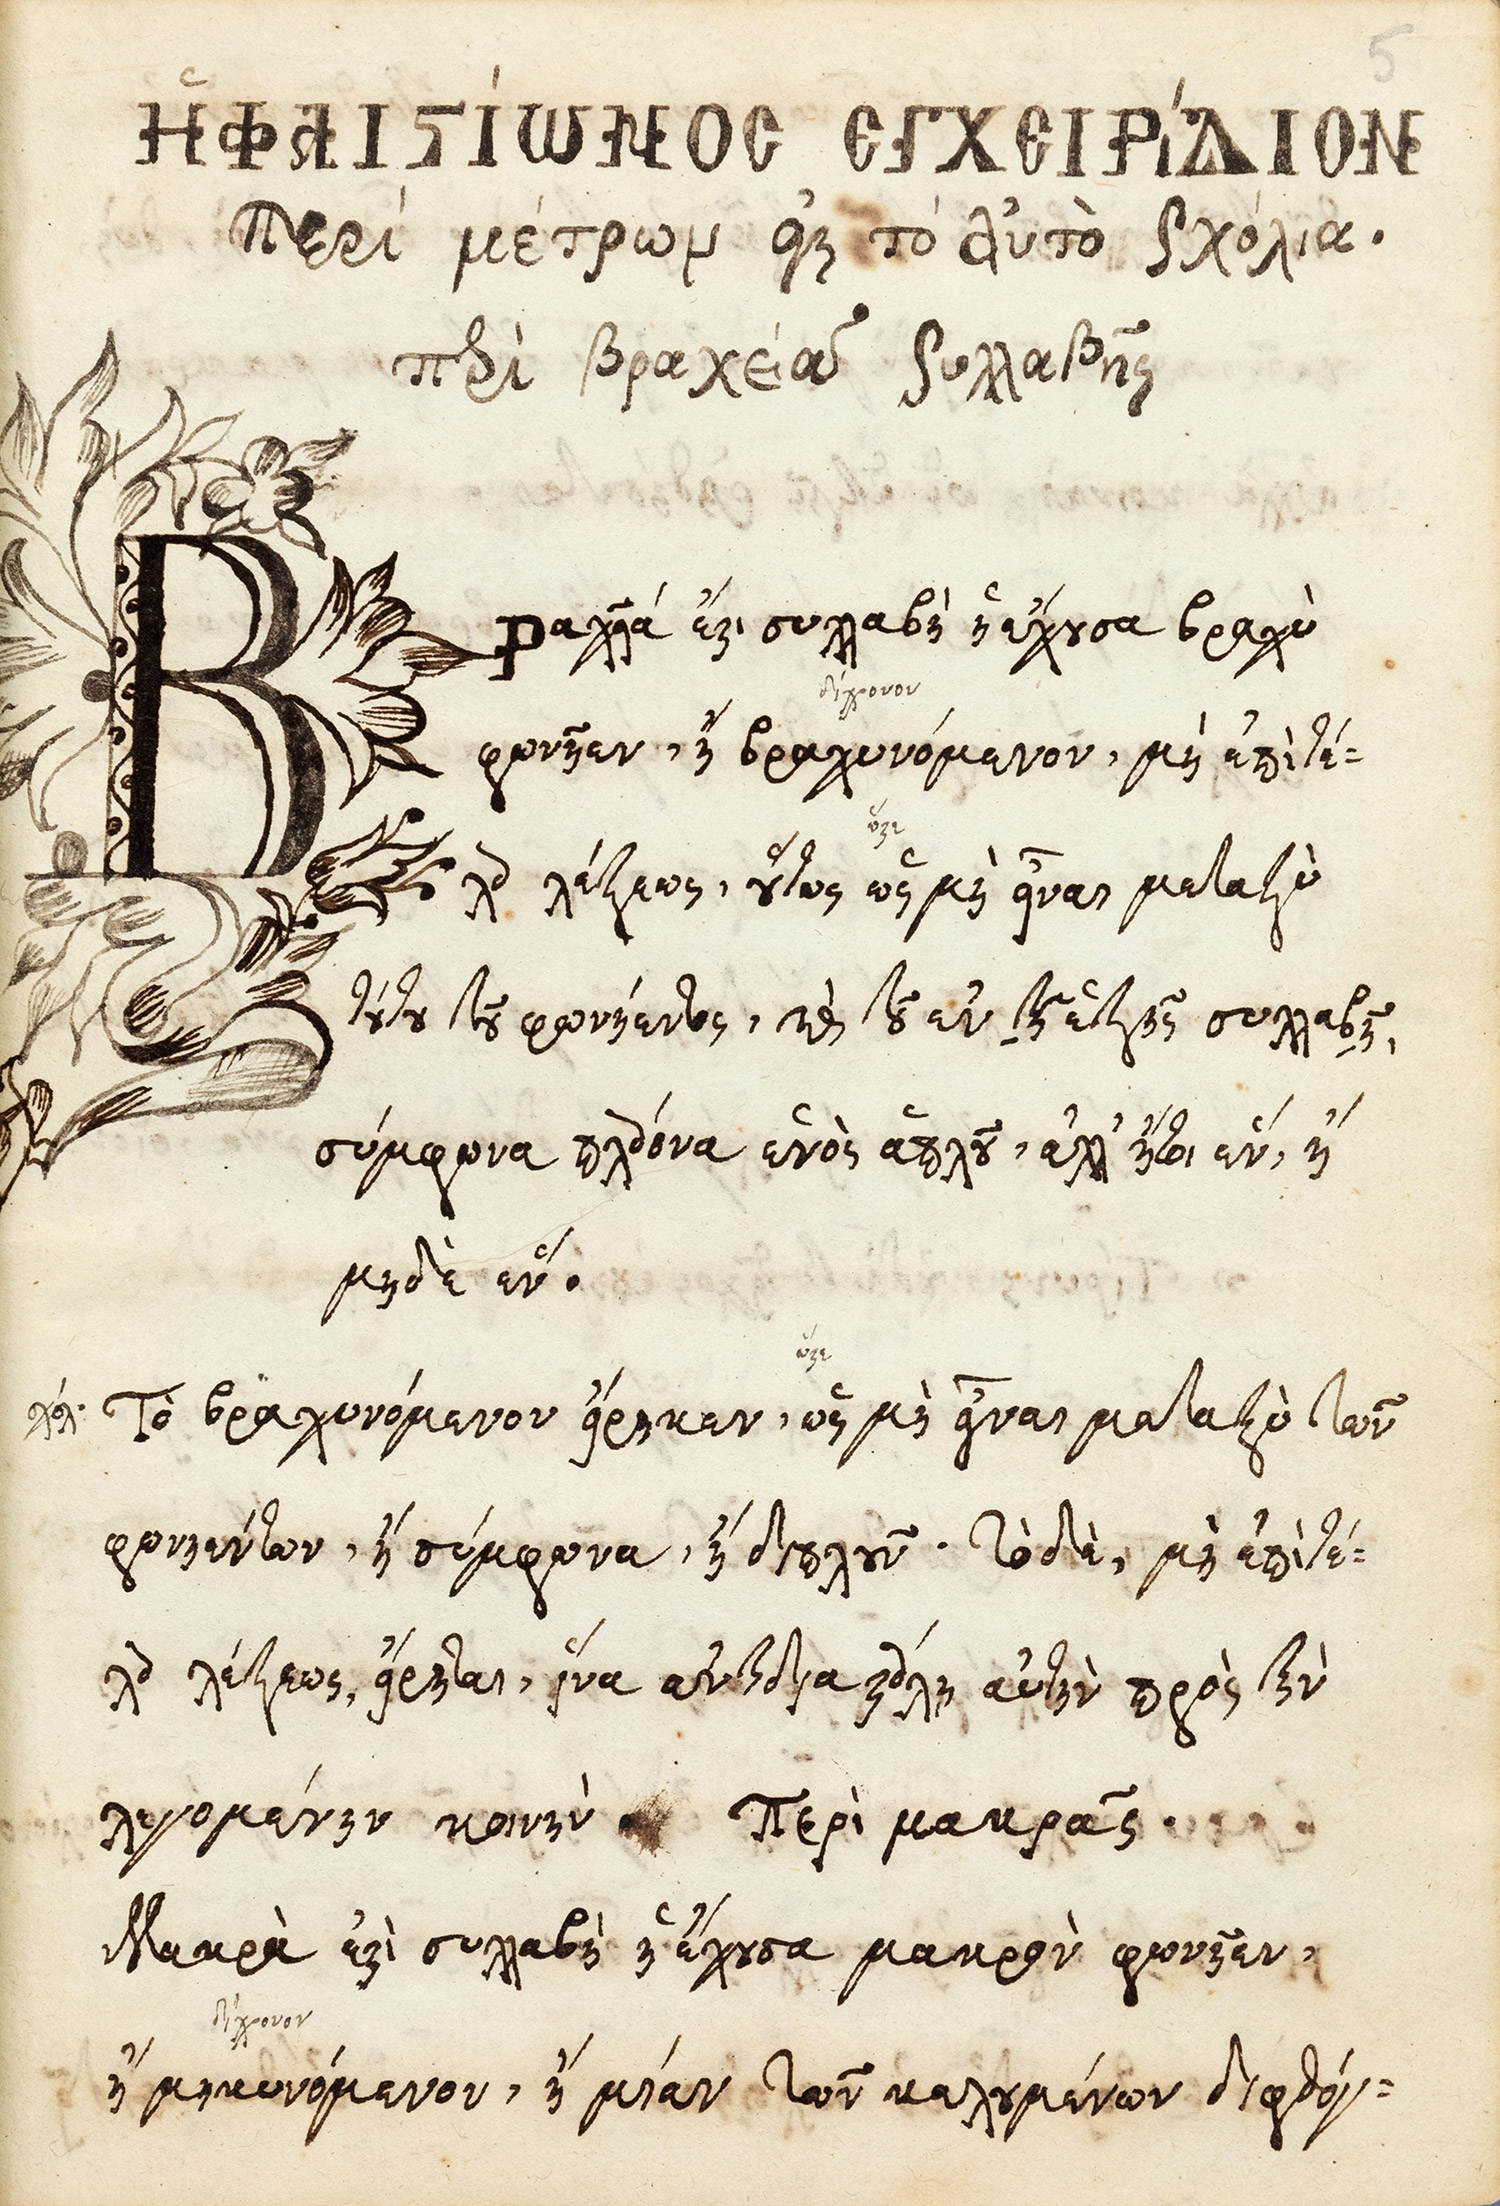 5
ἩΦΑΙΣΤΊΩΝΟΣ ΕΓΧΕΙΡΊΔΙΟΝ
Περί μέτρων εἰς τό αὐτὸ σχόλια.
περὶ βραχείας συλλαβῆς
Βραχεῖά ἔστι συλλαβὴ ἡ ἔχουσα βραχὺ
δίχρονον
φωνῆεν, ἢ βραχυνόμενον, μὴ ἐπὶ τέ=
ὥστε
λει λέξεως, οὕτως ὡς μὴ εἶναι μεταξὺ
τούτου τοῦ φωνήεντος, καὶ τοῦ ἐν τῇ ἑξῆς συλλαβῇ,
σύμφωνα πλείονα ἑνὸς ἁπλοῦ, ἀλλ' ἤτοι ἕν, ἢ
μηδὲ ἕν.
σχόλ. Τὸ βραχυνόμενον εἴρηκεν, ὡς μὴ εἶναι μεταξὺ τῶν
ὥστε
φωνηέντων, ἢ σύμφωνα, ἢ διπλοῦν. Τὸ δὲ, μὴ ἐπὶ τέ=
λει λέξεως, εἴρηται, ἵνα ἀντιδιαστείλῃ αὐτὴν πρὸς τὴν
λεγομένην κοινήν. Περὶ μακρᾶς.
Μακρὰ ἐστὶ συλλαβὴ ἡ ἔχουσα μακρὸν φωνῆεν,
δίχρονον
ἢ μηκυνόμενον, ἢ μίαν τῶν καλουμένων διφθόγ=